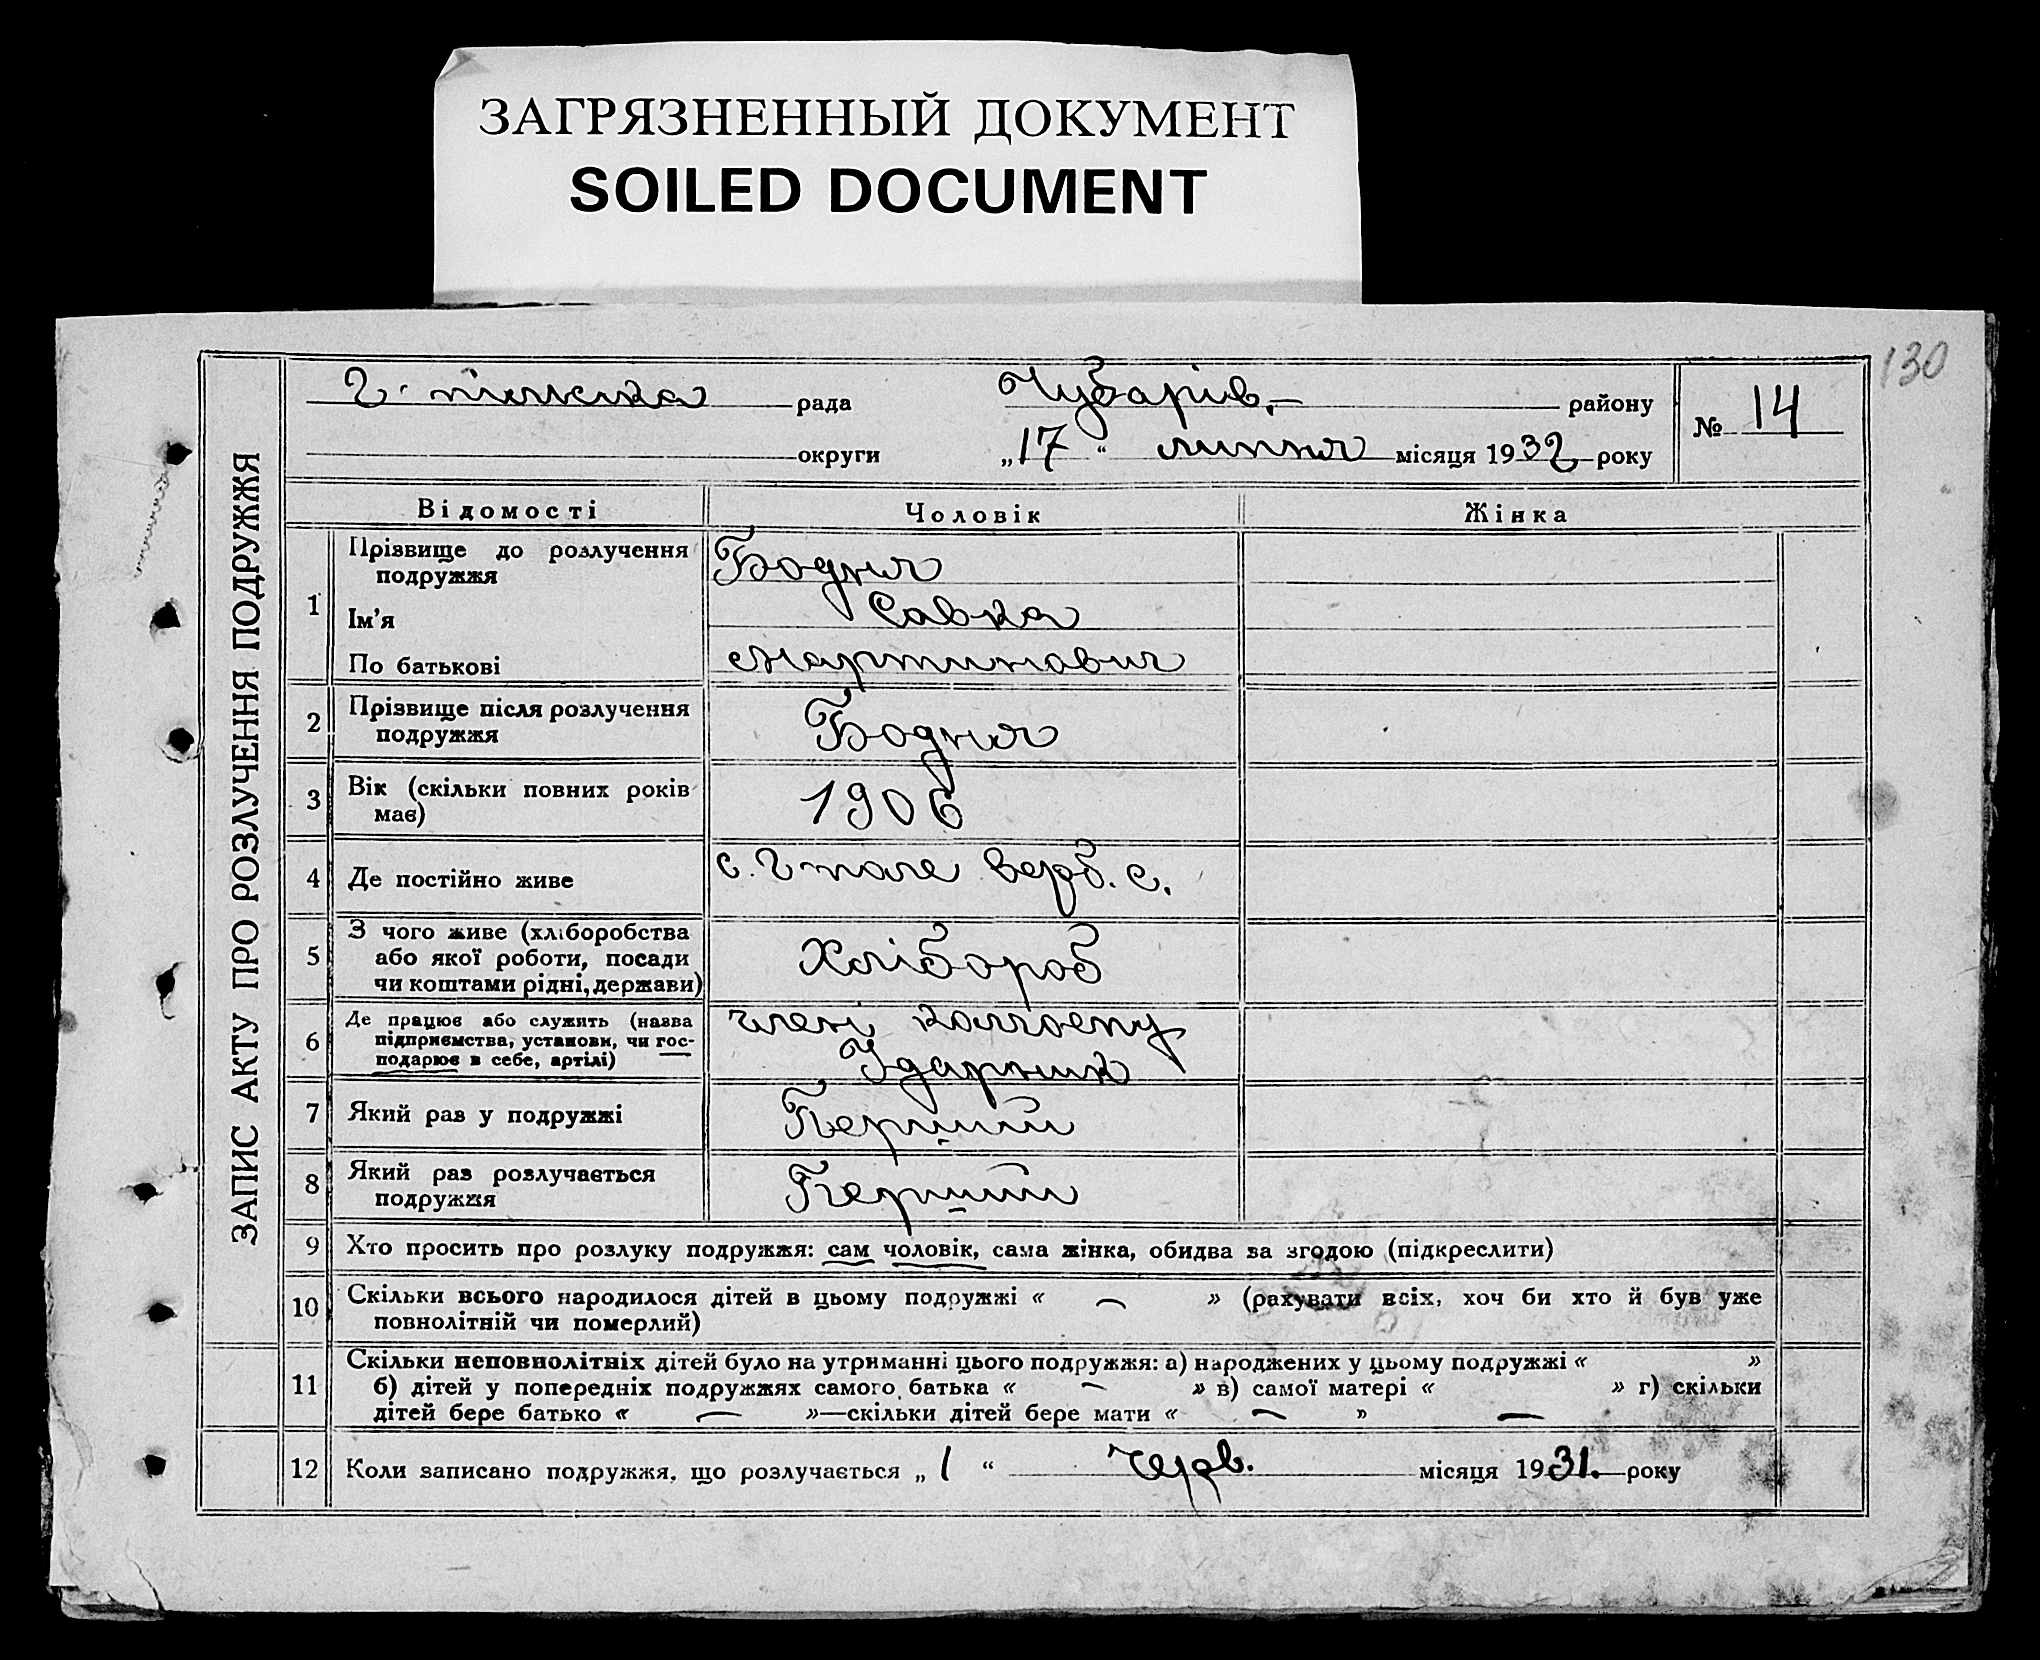 ЗАГРЯЗНЕННЫЙ ДОКУМЕНТ
SOILED DOCUMENT
130
ЗАПИС АКТУ ПРО РОЗЛУЧЕННЯ ПОДРУЖЖЯ
рада
Чубарів.– району
№ 14
округи
„17“ липня місяця 1932 року
Відомості Чоловік Жінка
1
Прізвище до розлучення
подружжя
Бодня
Ім'я Савка
По батькові Мартинович
2
Прізвище після розлучення
подружжя
Бодня
3
Вік (скільки повних років
має)
1906
4 Де постійно живе с. верб. с.
5
З чого живе (хліборобства
або якої роботи, посади
чи коштами рідні, держави)
Хлібороб
6
Де працює або служить (назва
підприємства, установи, чи гос-
подарює в себе, артілі)
член колгоспу
Ударник
7 Який раз у подружжі Перший
8
Який раз розлучається
подружжя
Перший
9 Хто просить про розлуку подружжя: сам чоловік, сама жінка, обидва за згодою (підкреслити)
10 Скільки всього народилося дітей в цьому подружжі « — » (рахувати всіх, хоч би хто й був уже
повнолітній чи померлий)
11
Скільки неповнолітніх дітей було на утриманні цього подружжя: а) народжених у цьому подружжі « »
б) дітей у попередніх подружжях самого батька « — » в) самої матері « » г) скільки
дітей бере батько « — »—скільки дітей бере мати « — » —
12 Коли записано подружжя, що розлучається „1“ черв. місяця 1931. року